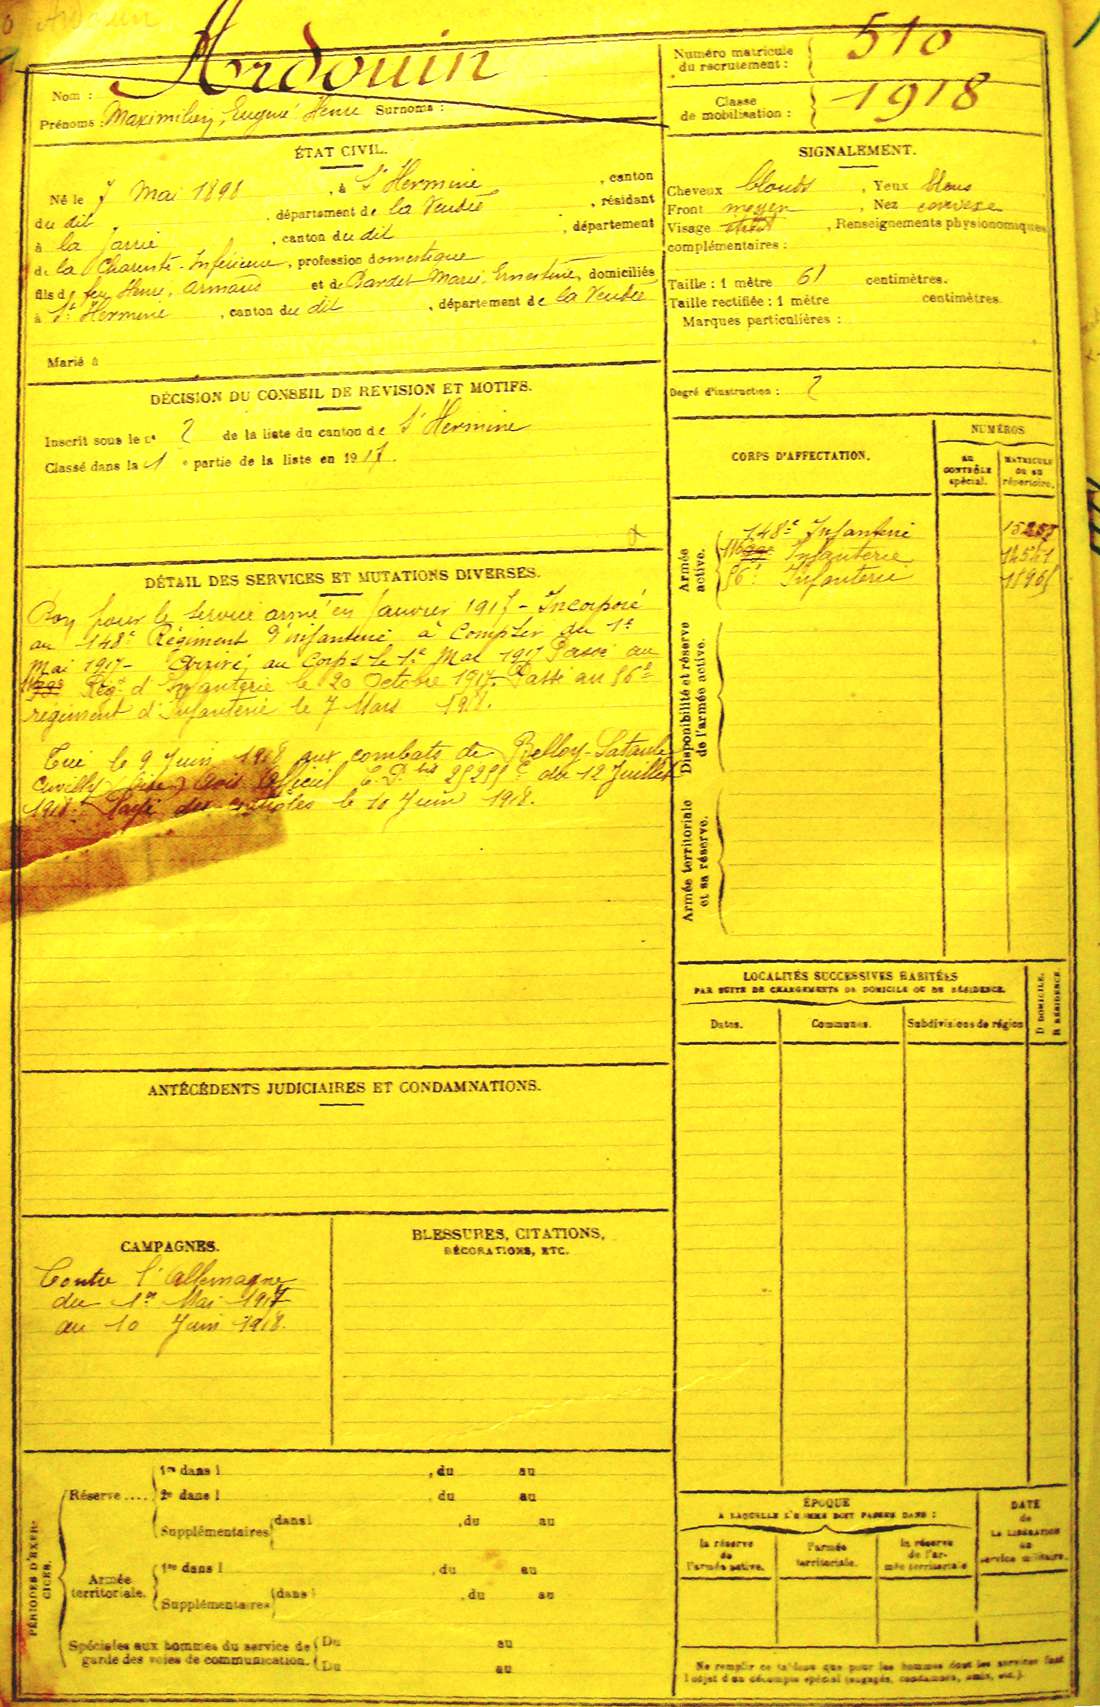 Ardouin
Nom : Ardouin
Prénoms : Maximilien, Eugène Henri Surnoms :
Numéro matricule
du recrutement : 510
Classe
de mobilisation : 1918
ÉTAT CIVIL.
Né le 7 Mai 1898, à St Hermine, canton
du dit, département de la Vendée, résidant
à la Jarrie, canton du dit, département
de la Charente-Inférieure, profession domestique
fils de feu Henri, Armand et de Bardet Marie Ernestine, domiciliés
à St Hermine, canton du dit, département de la Vendée
Marié à
SIGNALEMENT.
Cheveux blonds, Yeux bleus
Front moyen, Nez convexe
Visage, Renseignements physionomiques
complémentaires :
Taille : 1 mètre 61 centimètres.
Taille rectifiée : 1 mètre centimètres.
Marques particulières :
Degré d'instruction : 2
DÉCISION DU CONSEIL DE REVISION ET MOTIFS.
Inscrit sous le n° 2 de la liste du canton de St Hermine
Classé dans la 1e partie de la liste en 1917.
CORPS D'AFFECTATION.
NUMÉROS
AU CONTRÔLE spécial.
MATRICULE OU AU répertoire.
Armée active.
148e Infanterie
116 Infanterie
86e Infanterie
Disponibilité et réserve de l'armée active.
Armée territoriale et sa réserve.
DÉTAIL DES SERVICES ET MUTATIONS DIVERSES.
Bon pour le service armé en Janvier 1917 - Incorporé
au 148e Régiment d'infanterie à compter du 1er
Mai 1917 - Arrivé au Corps le 1er Mai 1917 Passé au
116 Régt d'Infanterie le 20 Octobre 1917. Passé au 86e
régiment d'Infanterie le 7 Mars 1918.
Tué le 9 Juin 1918 aux combats de Belloy-Lataule
Cuvilly (Oise) Avis Officiel du 12 Juillet
1918. Rayé des contrôles le 10 Juin 1918.
LOCALITÉS SUCCESSIVES HABITÉES
PAR SUITE DE CHANGEMENTS DE DOMICILE OU DE RÉSIDENCE.
Dates.
Communes.
Subdivisions de région
D DOMICILE.
R RÉSIDENCE.
ANTÉCÉDENTS JUDICIAIRES ET CONDAMNATIONS.
CAMPAGNES.
Contre l'Allemagne
du 1er Mai 1917
au 10 Juin 1918.
BLESSURES, CITATIONS,
DÉCORATIONS, ETC.
PÉRIODES D'EXERCICES.
Réserve....
1re dans l, du au
2e dans l, du au
Supplémentaires dans l, du au
Armée
territoriale.
1re dans l, du au
Supplémentaires dans l, du au
Spéciales aux hommes du service de
garde des voies de communication.
Du au
Du au
ÉPOQUE
A LAQUELLE L'HOMME DOIT PASSER DANS :
la réserve
de
l'armée active.
l'armée
territoriale.
la réserve
de l'armée territoriale
DATE
de
LA LIBÉRATION
du
service militaire.
Ne remplir ce tableau que pour les hommes dont les services font
l'objet d'un décompte spécial (engagés, condamnés, omis, etc.).